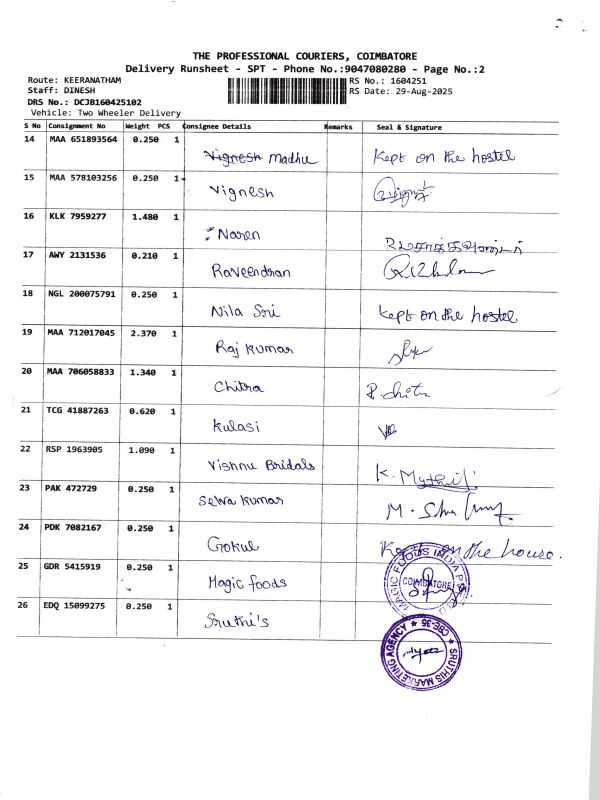 THE PROFESSIONAL COURIERS, COIMBATORE
Delivery Runsheet - SPT - Phone No.:9047080280 - Page No.:2
Route: KEERANATHAM RS No.: 1604251
Staff: DINESH RS Date: 29-Aug-2025
DRS No.: DCJB160425102
Vehicle: Two Wheeler Delivery
S No Consignment No Weight PCS Consignee Details Remarks Seal & Signature
14 MAA 651893564 0.250 1 Vignesh Madhu Kept on the hostel
15 MAA 578103256 0.250 1 Vignesh
16 KLK 7959277 1.480 1 Naren
17 AWY 2131536 0.210 1 Raveendran
18 NGL 200075791 0.250 1 Nila Sri Kept on the hostel
19 MAA 712017045 2.370 1 Raj Kumar
20 MAA 706058833 1.340 1 Chitra P. chitra
21 TCG 41887263 0.620 1 Kulasi
22 RSP 1963905 1.090 1 Vishnu Bridals K. Mythili
23 PAK 472729 0.250 1 Selva Kumar M.
24 PDK 7082167 0.250 1 Gokul Kept on the house.
25 GDR 5415919 0.250 1 Magic foods MAGIC FOODS INDIA COIMBATORE
26 EDQ 15099275 0.250 1 Sruthi's SRUTHIS MARKETING AGENCY ★ CBE-35 ★